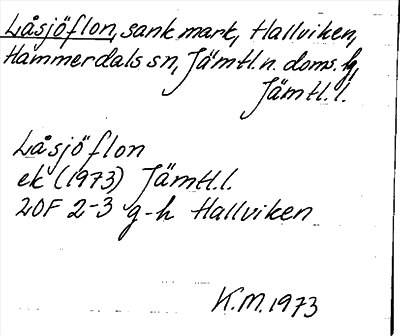 Låsjöflon, sank mark, Hallviken,
Hammerdals sn, Jämtl.n. doms. hg,
Jämtl. l.
Låsjöflon
ek (1973) Jämtl. l.
20F 2-3 g-h Hallviken
K.M. 1973